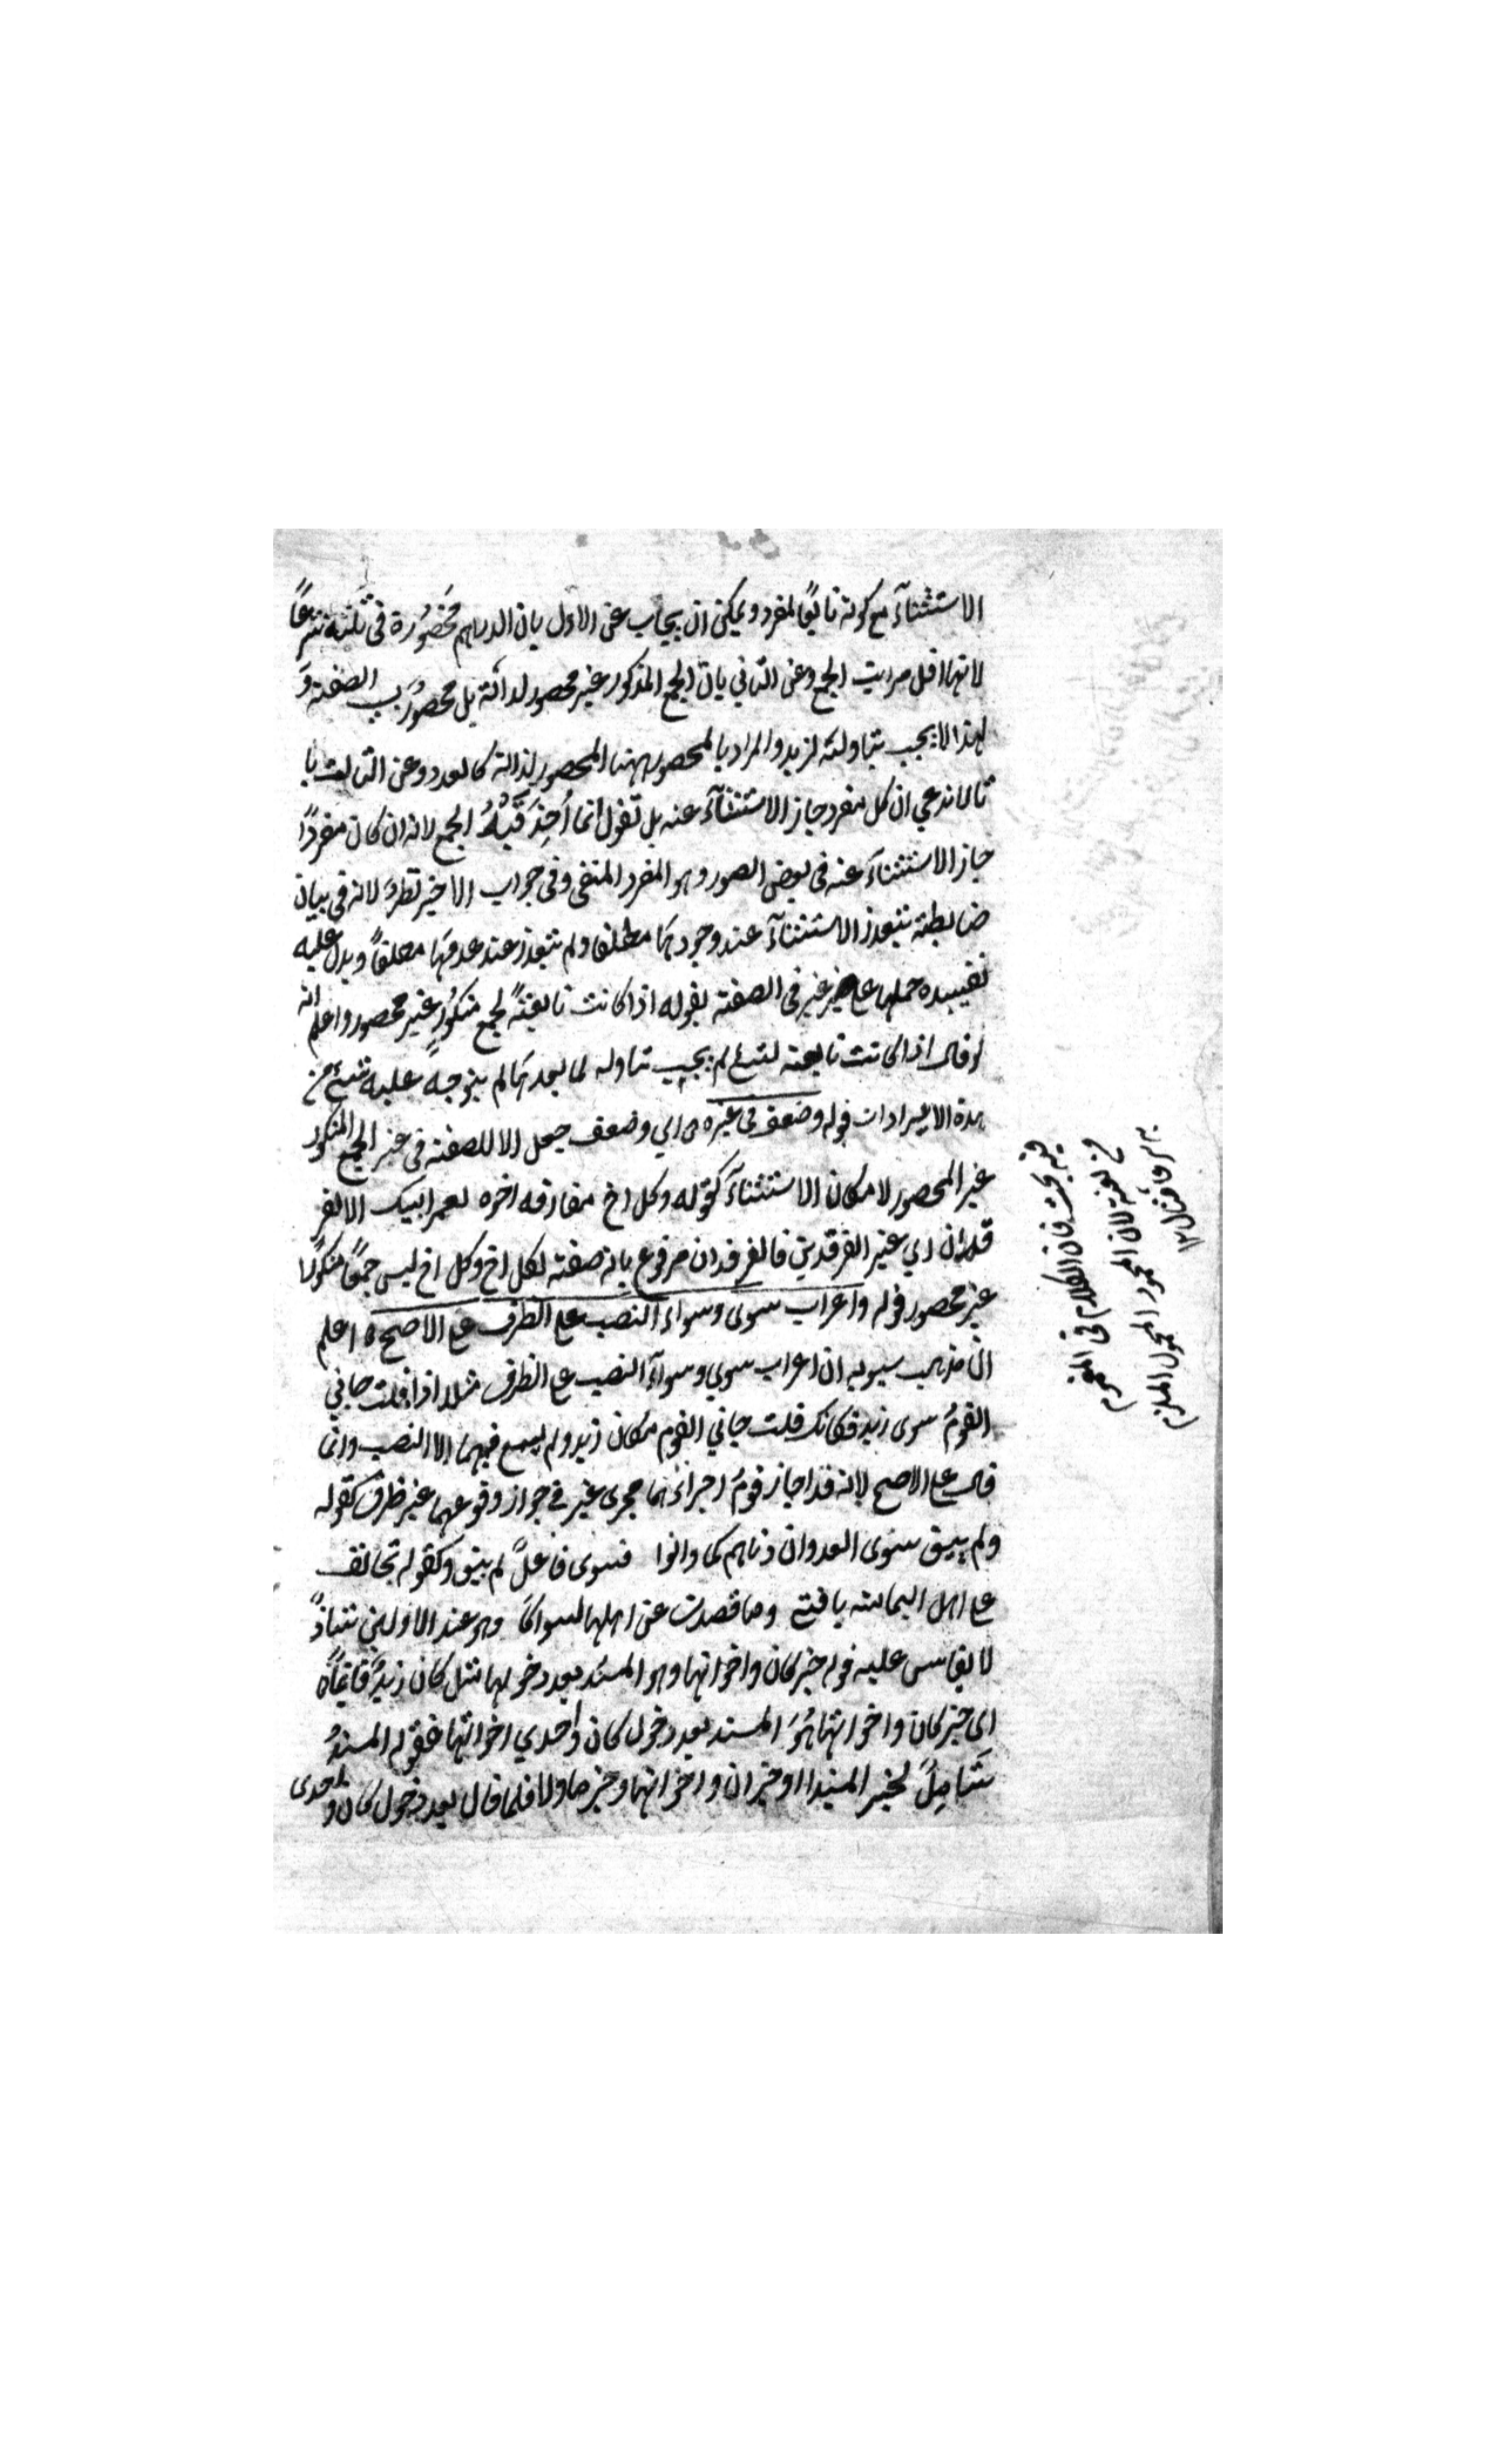 الاستثنآء مع كونه تابعًا لمفرد ويمكن ان يجاب عن الاول بان الدراهم محصُورة فى ثلثة شرعًا
لانها اقل مراتب الجمع وعن الثاني بان الجمع المذكور غير محصور لذاته بل محصورٌ بسبب الصفة و
لهذا لا يجب تناولهُ لزيد والمراد بالمحصور ههنا المحصور لذاته كالعدد وعن الثالث با
نا لا ندعي ان كل مفرد جاز الاستثنآء عنه بل نقول انما اُخِذَ قَيْدُ الجمع لانه ان كان مفردًا
جاز الاستثنآء عنه فى بعض الصور وهو المفرد المنفى وفى جواب الاخير نظرٌ لانه فى بيان
ضابطة يتعذر الاستثنآء عند وجودها مطلقا ولم يتعذر عند عدمها مطلقًا ويدل عليه
تقييده حملها على غير فى الصفة بقوله اذا كانت تابعةً لجمع منكُورٍ غير محصور واعلم انه
لو قال اذا كانت تابعة لشئ لم يجب تناوله لما بعدها لم يتوجه عليه شئ من
هذه الايرادات قوله وضعف فى غيره اي وضعف جعل الا للصفة فى غير الجمع المنكور
غير المحصور لامكان الاستثنآء كقوله وكل اخ مفارقه اخوه لعمر ابيك الا الفر
قدان اي غير الفرقدين فالفرقدان مرفوع بانه صفة لكل اخ وكل اخ ليس جمعًا منكورًا
غير محصور قوله واعراب سوى وسواء النصب على الظرف على الاصح اعلم
ان مذهب سيبويه ان اعراب سوي وسوآء النصب على الظرف مثلا اذا قلت جاني
القومُ سوى زيد فكانك قلت جاني القوم مكان زيد ولم يسمع فيهما الا النصب وانما
قال على الاصح لانه قد اجاز قومُ اجرائهما مجرى غير فى جواز وقوعهما غير ظرف كقوله
ولم يبق سوى العدوان دناهم كما دانوا فسوى فاعلٌ لم يبق وكقوله تجانف
عن اهل اليمامة ناقتي وما قصدت عن اهلها لسوائكا وهو عند الاولين شاذٌ
لا يقاس عليه قوله خبر كان واخواتها وهو المسند بعد دخولها مثل كان زيدٌ قائمًا
اى خبر كان واخواتها هُوَ المسند بعد دخول كان واحدي اخواتها فقوله المسندُ
شَامِلٌ لخبر المبتدا او خبر ان واخواتها وخبر ما ولا فلما قال بعد دخول كان واحدى
فيه بحث فان الكلام فى
لان